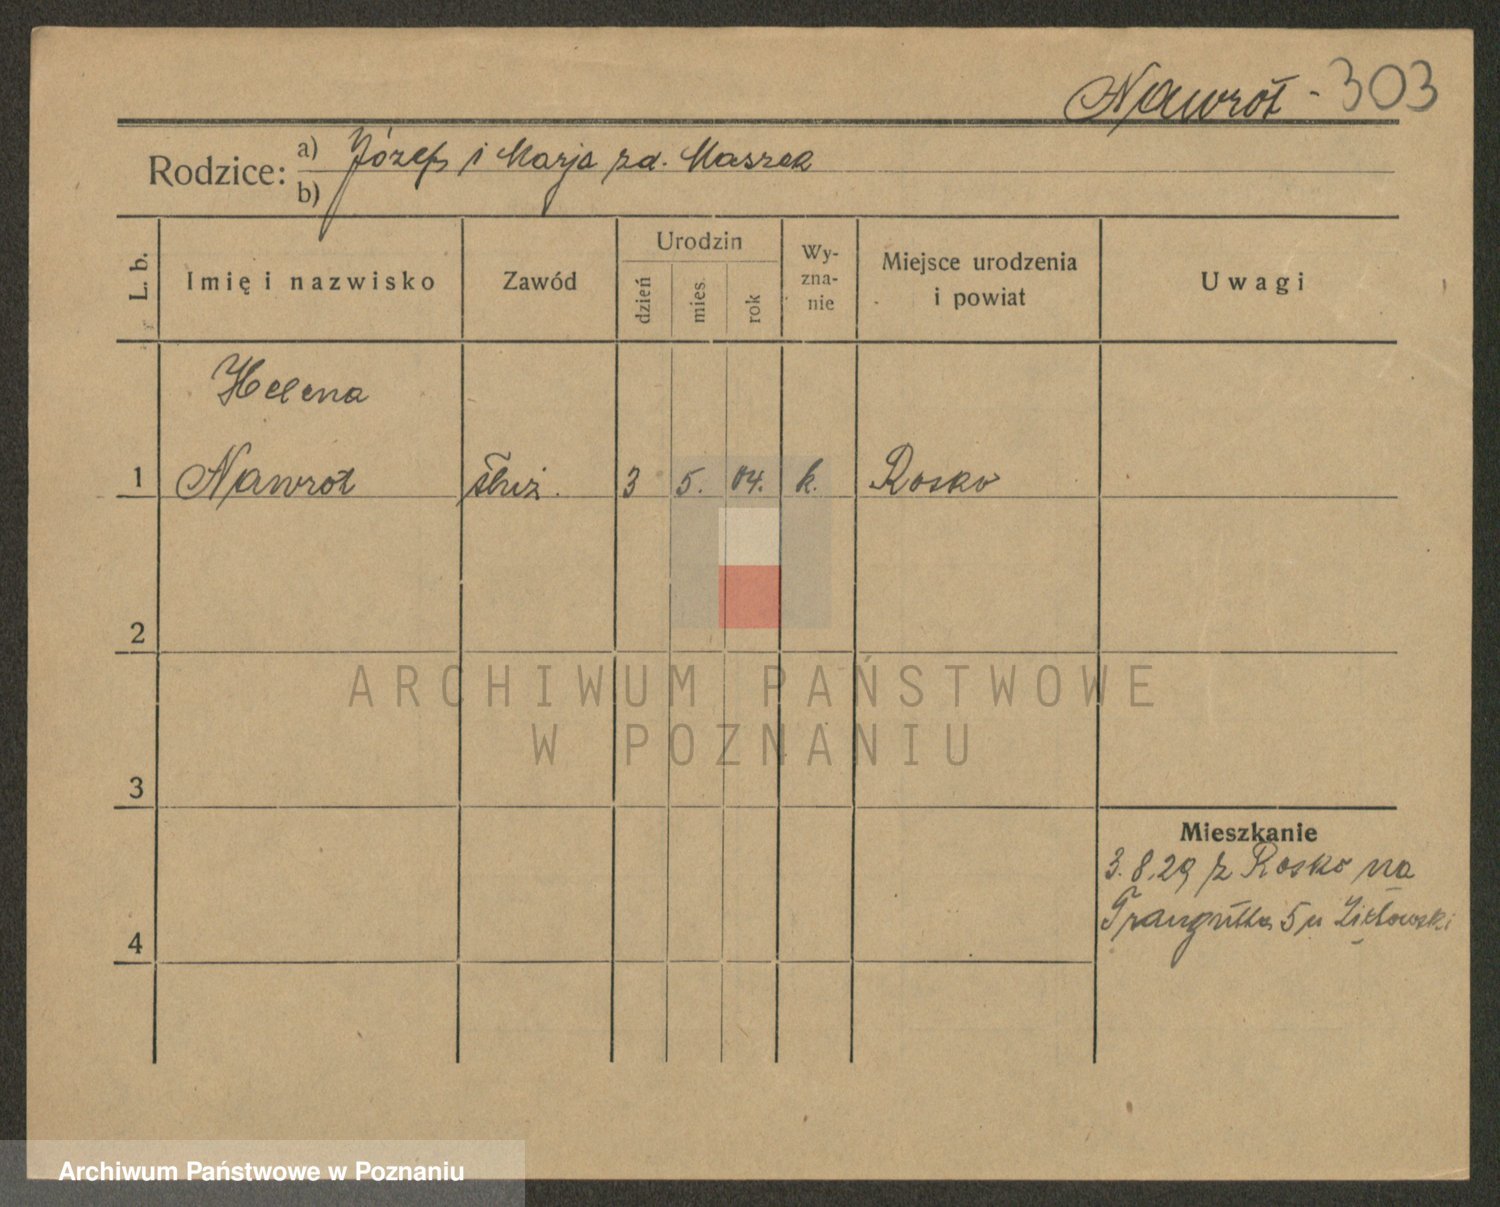 Nawrot - 303
Rodzice: a) Józef i Marja zd. Maszek
b)
L. b.
Imię i nazwisko
Zawód
Urodzin
dzień
mies.
rok
Wy-
zna-
nie
Miejsce urodzenia
i powiat
Uwagi
Helena
1 Nawrot służ. 3 5. 04. k. Rosko
2
ARCHIWUM PAŃSTWOWE
W POZNANIU
3
Mieszkanie
3.8.29 z Rosko na
4
5 u
Archiwum Państwowe w Poznaniu